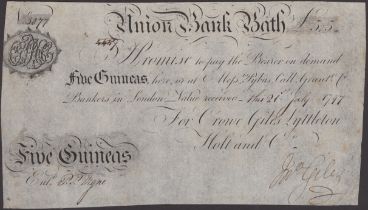 Union Bank Bath £5.5
I Promise to pay the Bearer on demand
Five Guineas here, or at Mess.rs Pybus, Call, Grant & Co
Bankers in London Value received This 21 July
For Crowe Giles Lyttleton
Holt and Co
Five Guineas
Ent.d